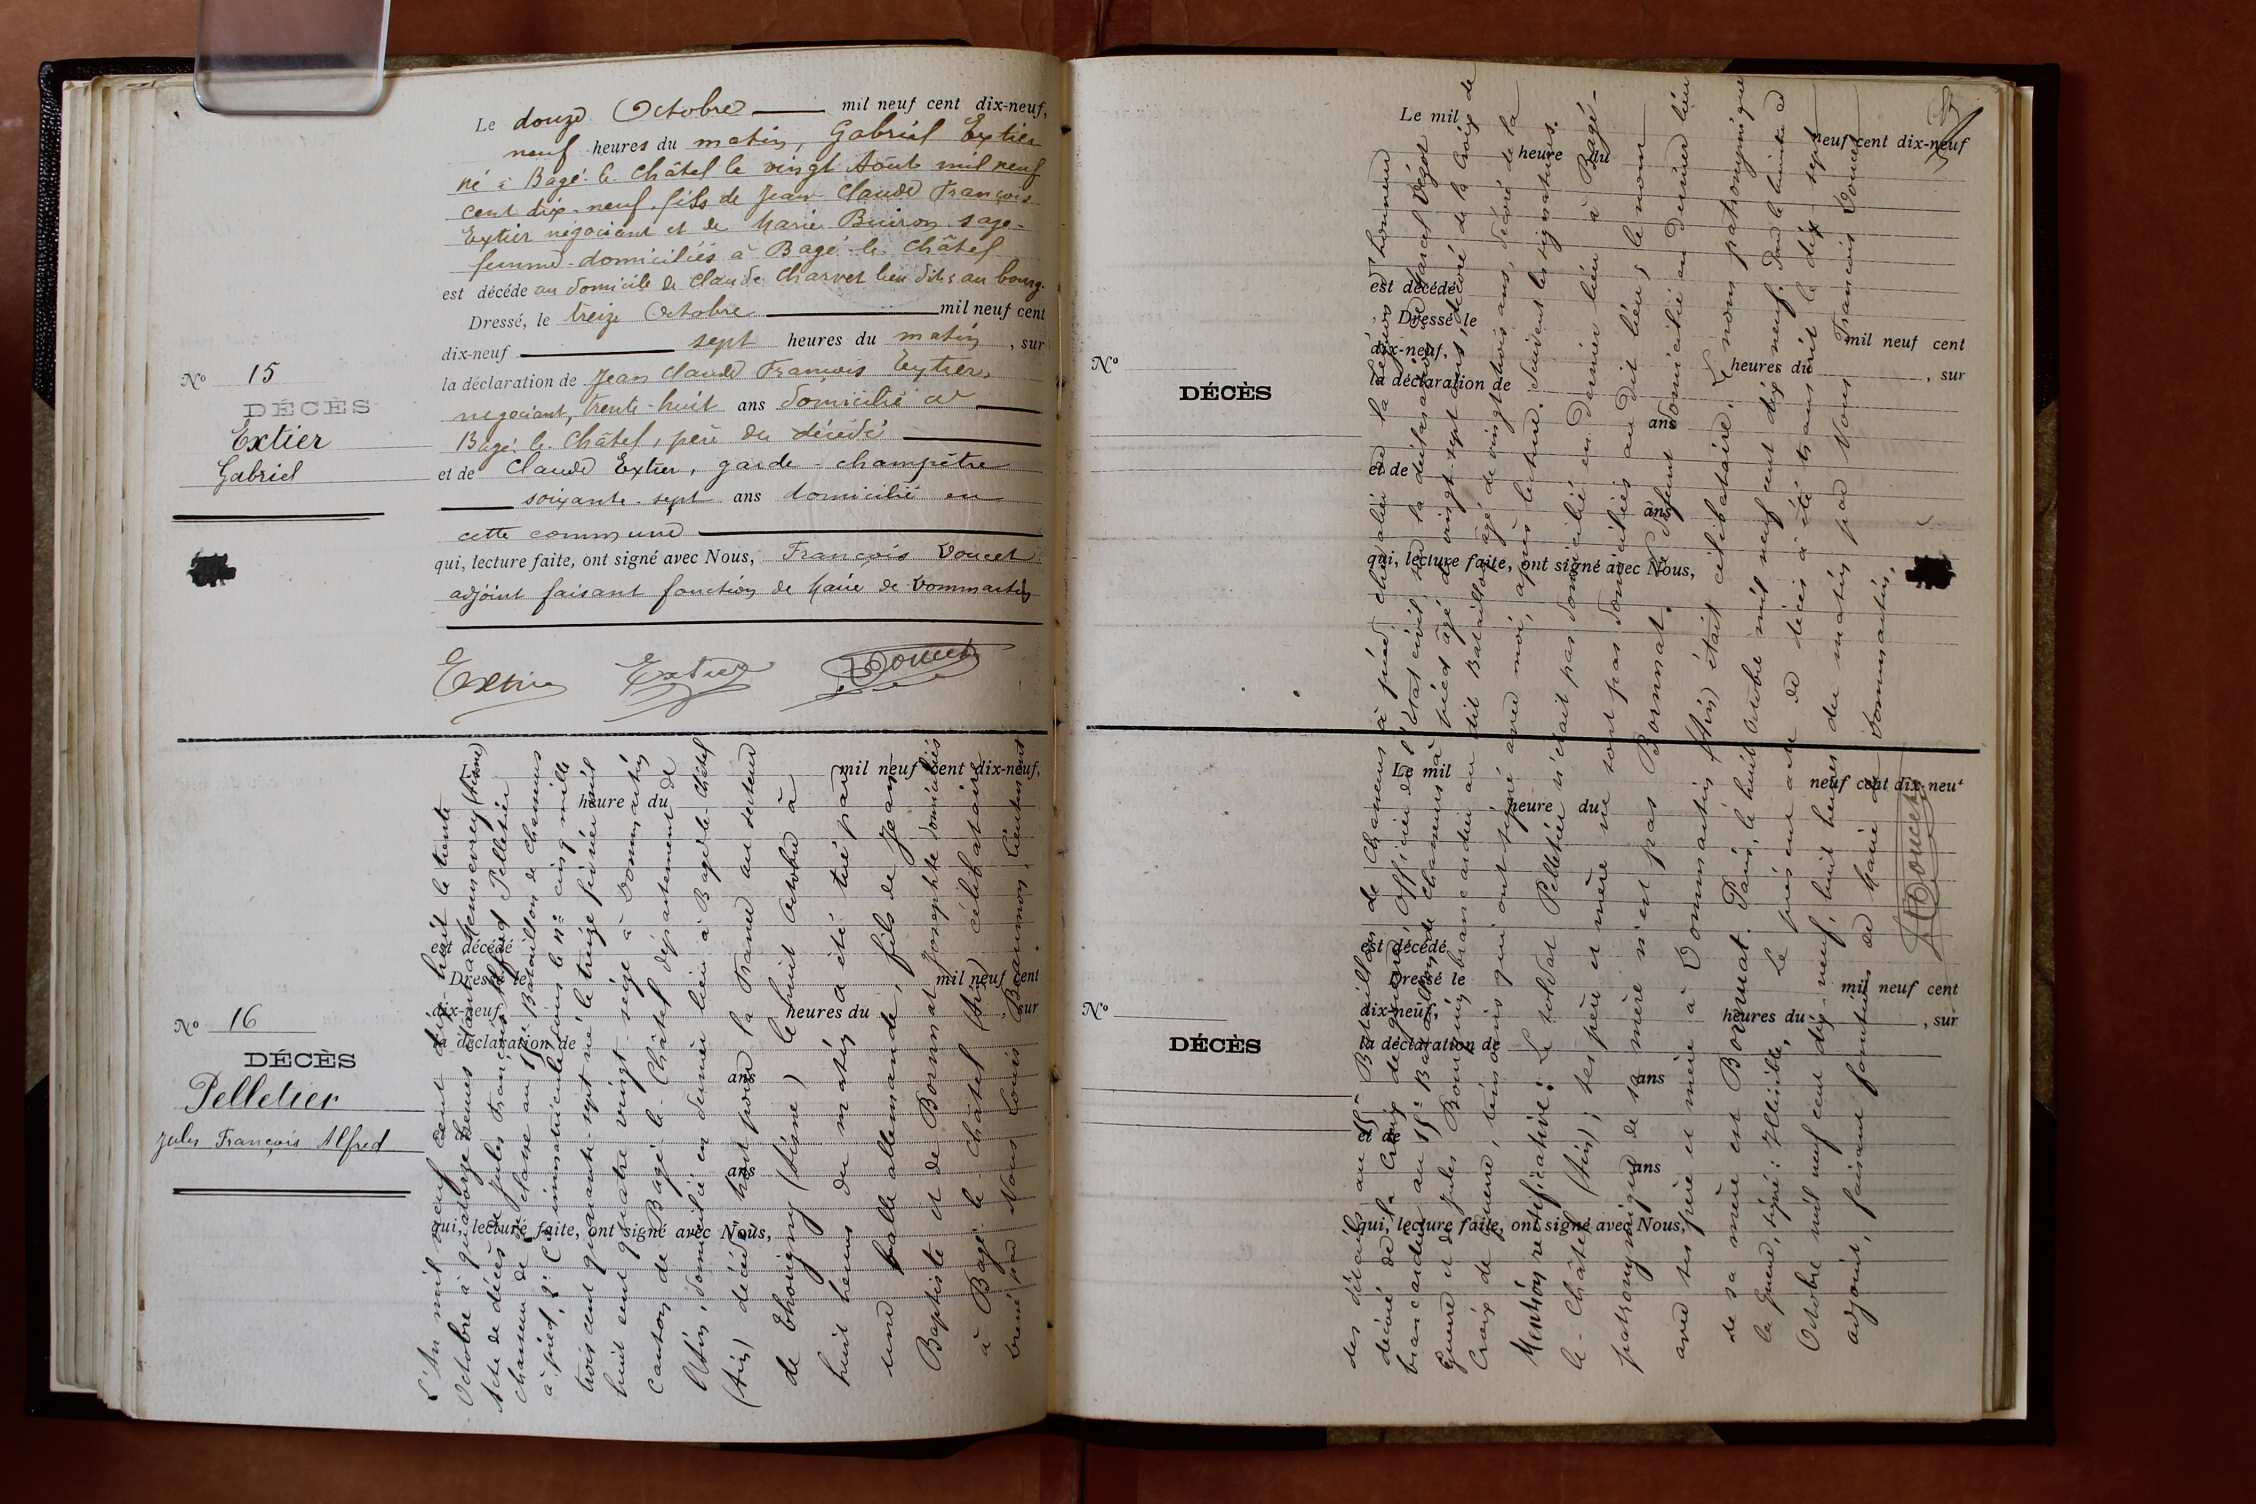 Le douze Octobre mil neuf cent dix-neuf,
neuf heures du matin, Gabriel Extier
né à Bagé-le-Châtel le vingt Août mil neuf
cent dix-neuf, fils de Jean Claude François
Extier négociant et de Marie Buiron sage-
femme domiciliés à Bagé-le-Châtel
est décédé au domicile de Claude Charvet lieu dit: au bourg.
Dressé, le treize Octobre mil neuf cent
dix-neuf sept heures du matin, sur
la déclaration de Jean Claude François Extier,
négociant, trente-huit ans domicilié à
Bagé-le-Châtel, père du décédé
et de Claude Extier, garde-champêtre
soixante-sept ans domicilié en
cette commune
qui, lecture faite, ont signé avec Nous, François Doucet
adjoint faisant fonction de Maire de Dommartin
Extier Extier Doucet
No 15
DÉCÈS
Extier
Gabriel
No 16
DÉCÈS
Pelletier
Jules François Alfred
mil neuf cent dix-neuf,
heure du
est décédé
Dressé le mil neuf cent
dix-neuf heures du sur
la déclaration de
ans
ans
qui, lecture faite, ont signé avec Nous,
L'An mil neuf cent dix-huit le trente
Octobre à quatorze heures étant à
Acte de décès de Jules François Alfred Pelletier
chasseur de 2e classe au 15e Bataillon de Chasseurs
à pied, 2e Cie immatriculé sous le no cinq mille
trois cent quarante-sept né le treize février mil
huit cent quatre vingt-seize à Dommartin
Canton de Bagé-le-Châtel département de
l'Ain, domicilié en dernier lieu à Bagé-le-Châtel
(Ain) décédé Mort pour la France au secteur
de Thorigny (Aisne) le huit Octobre à
huit heures du matin a été tué par
une balle allemande, fils de Jean
Baptiste et de Bornnat Josephte domiciliés
à Bagé-le-Châtel (Ain) célibataire.
Dressé par Nous Louis Beaumon, lieutenant
No
DÉCÈS
Le mil neuf cent dix-neuf
heure du
est décédé
Dressé le mil neuf cent
dix-neuf, heures du , sur
la déclaration de
ans
et de
ans
qui, lecture faite, ont signé avec Nous,
No
DÉCÈS
Le mil neuf cent dix-neuf
heure du
est décédé
Dressé le mil neuf cent
dix-neuf, heures du , sur
la déclaration de
ans
et de
ans
qui, lecture faite, ont signé avec Nous,
des détails au 15e Bataillon de Chasseurs à pied chevalier de la Légion d'honneur
décoré de la Croix de guerre, Officier de l'état civil, sur la déclaration de Marcel
brancardier au 15e Bataillon de Chasseurs à pied âgé de vingt-sept ans, décoré de la Croix de
Guerre et de Jules brancardier au dit Bataillon âgé de vingt-trois ans, décoré de la
Croix de guerre, témoins qui ont signé avec moi, après lecture. Suivent les signatures.
Mention rectificative: Le soldat Pelletier n'était pas domicilié en dernier lieu à Bagé-
le-Châtel (Ain); ses père et mère ne sont pas domiciliés au dit lieu; le nom
patronymique de sa mère n'est pas Bornnat. Le défunt domicilié en dernier lieu
avec ses père et mère à Dommartin (Ain) était célibataire. Le nom patronymique
de sa mère est Bonnat. Paris, le huit Octobre mil neuf cent dix neuf. Pour le Ministre de
la Guerre, signé: Illisible. Le présent acte de décès a été transcrit le dix-sept
Octobre mil neuf cent dix-neuf, huit heures du matin par Nous François Doucet
adjoint, faisant fonction de Maire de Dommartin.
Doucet